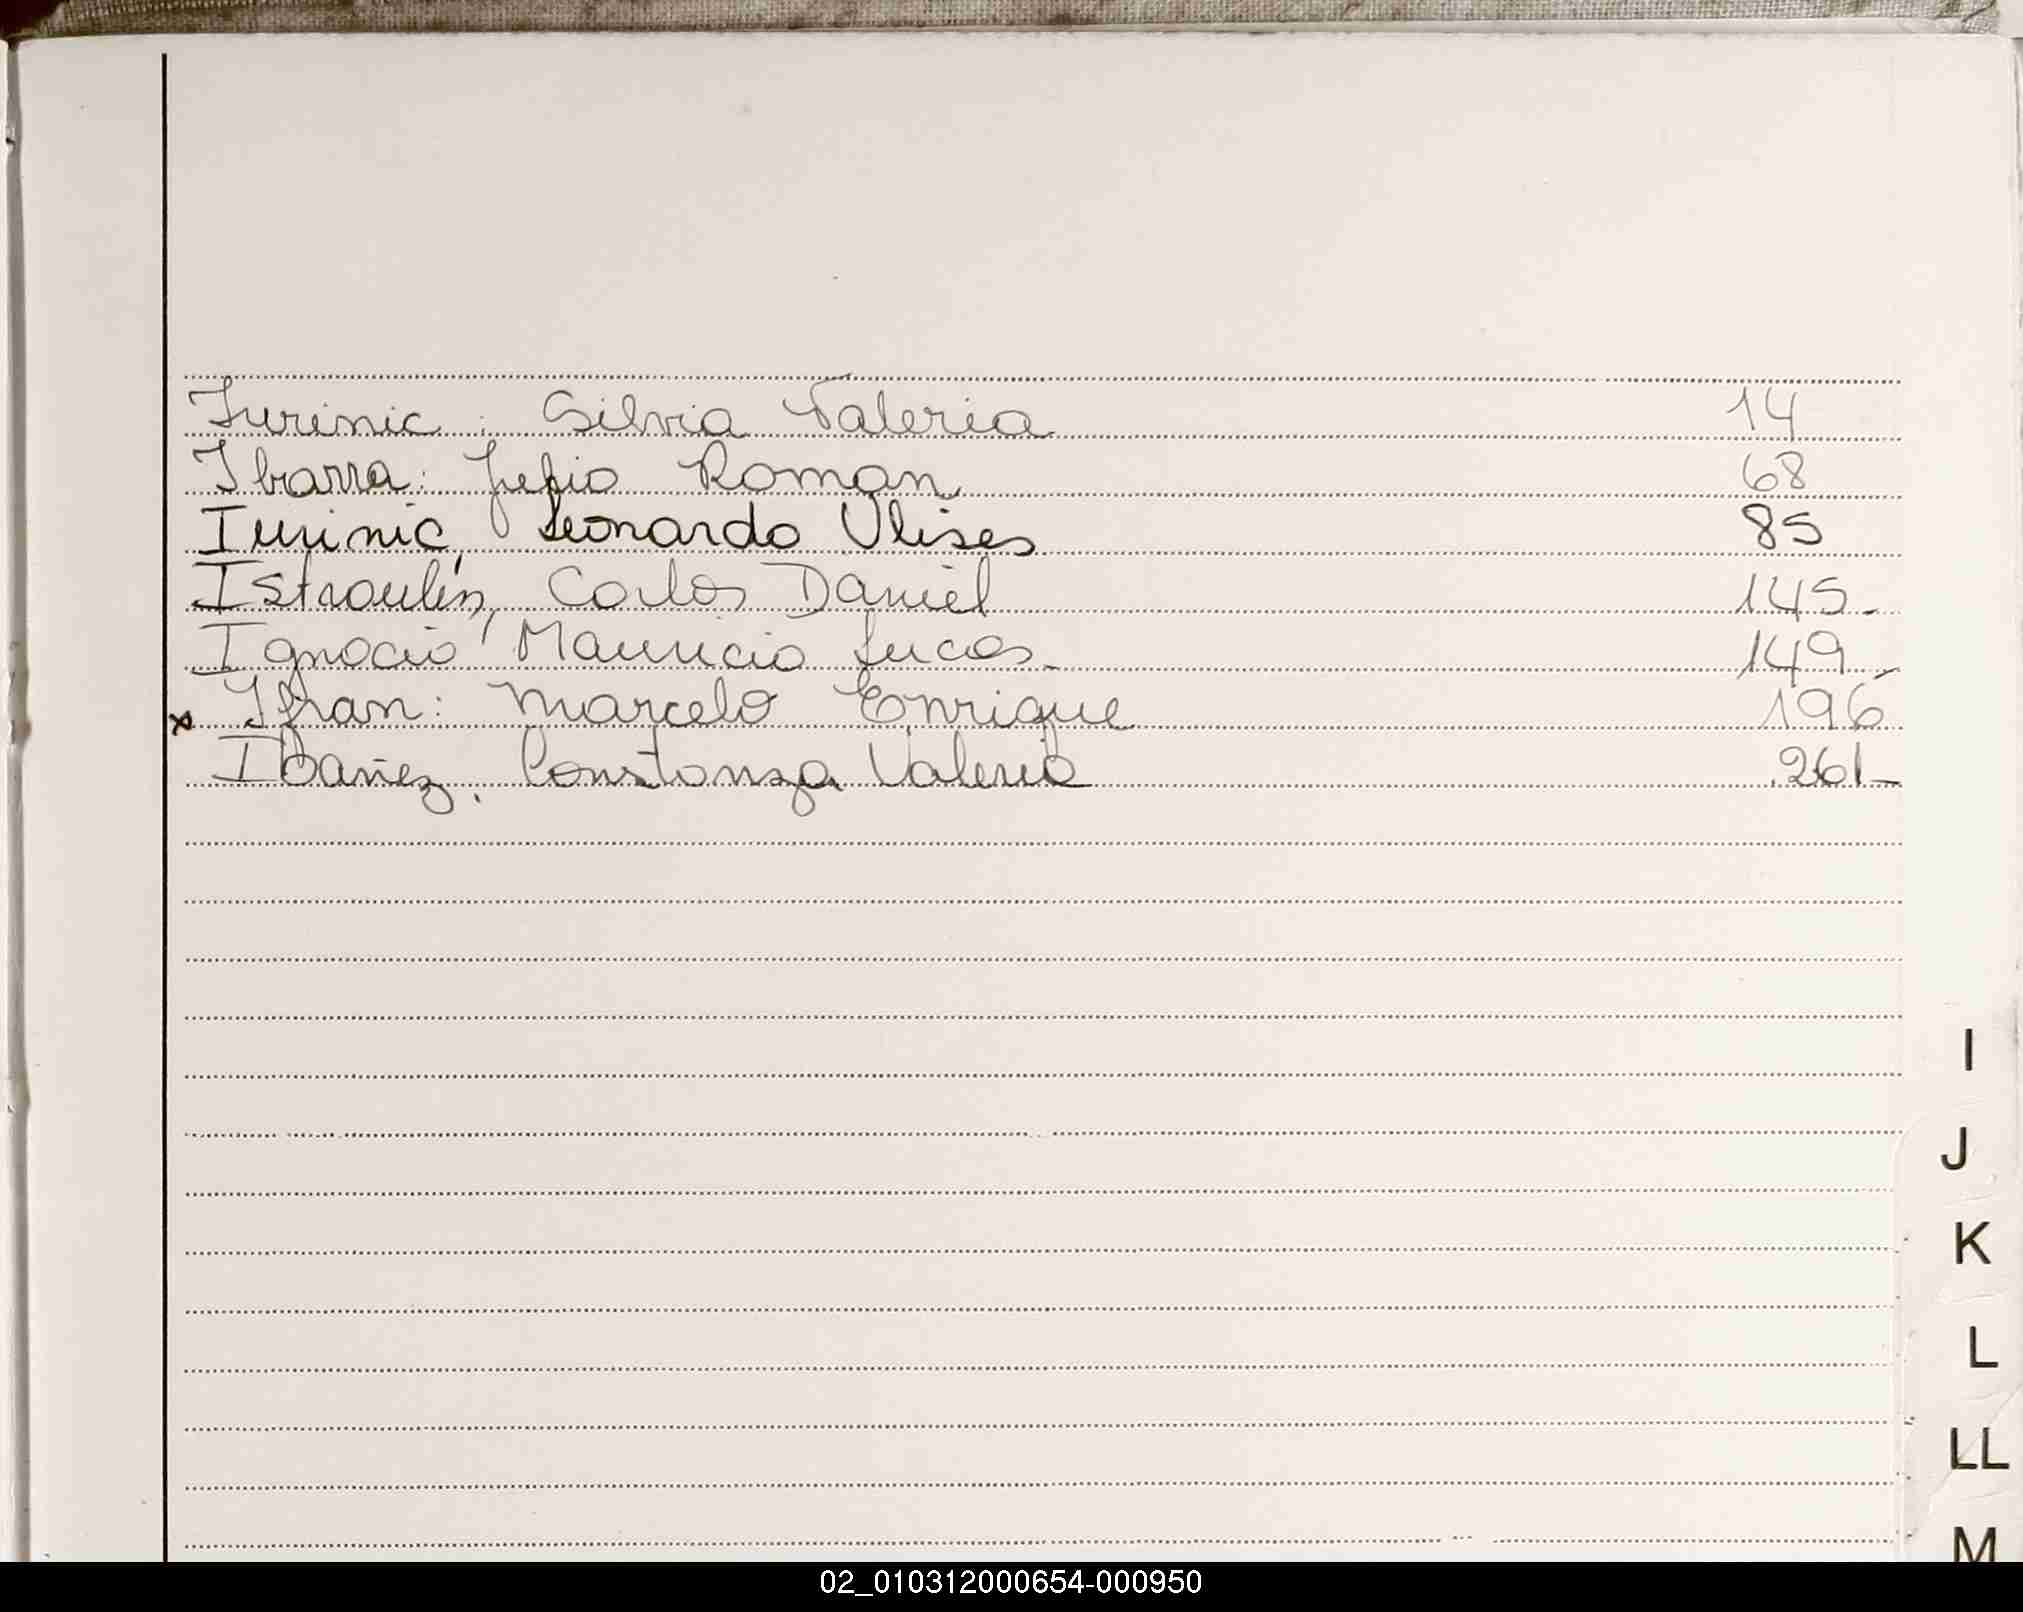 Iurinic : Silvia Valeria 14
Ibarra : Julio Roman 68
Iurinic, Leonardo Ulises 85
Istraulín, Carlos Daniel 145-
Ignacio, Mauricio Lucas- 149-
x Ifran : Marcelo Enrique 196
Ibañez, Constanza Valeria 261-
I
J
K
L
LL
M
02_010312000654-000950